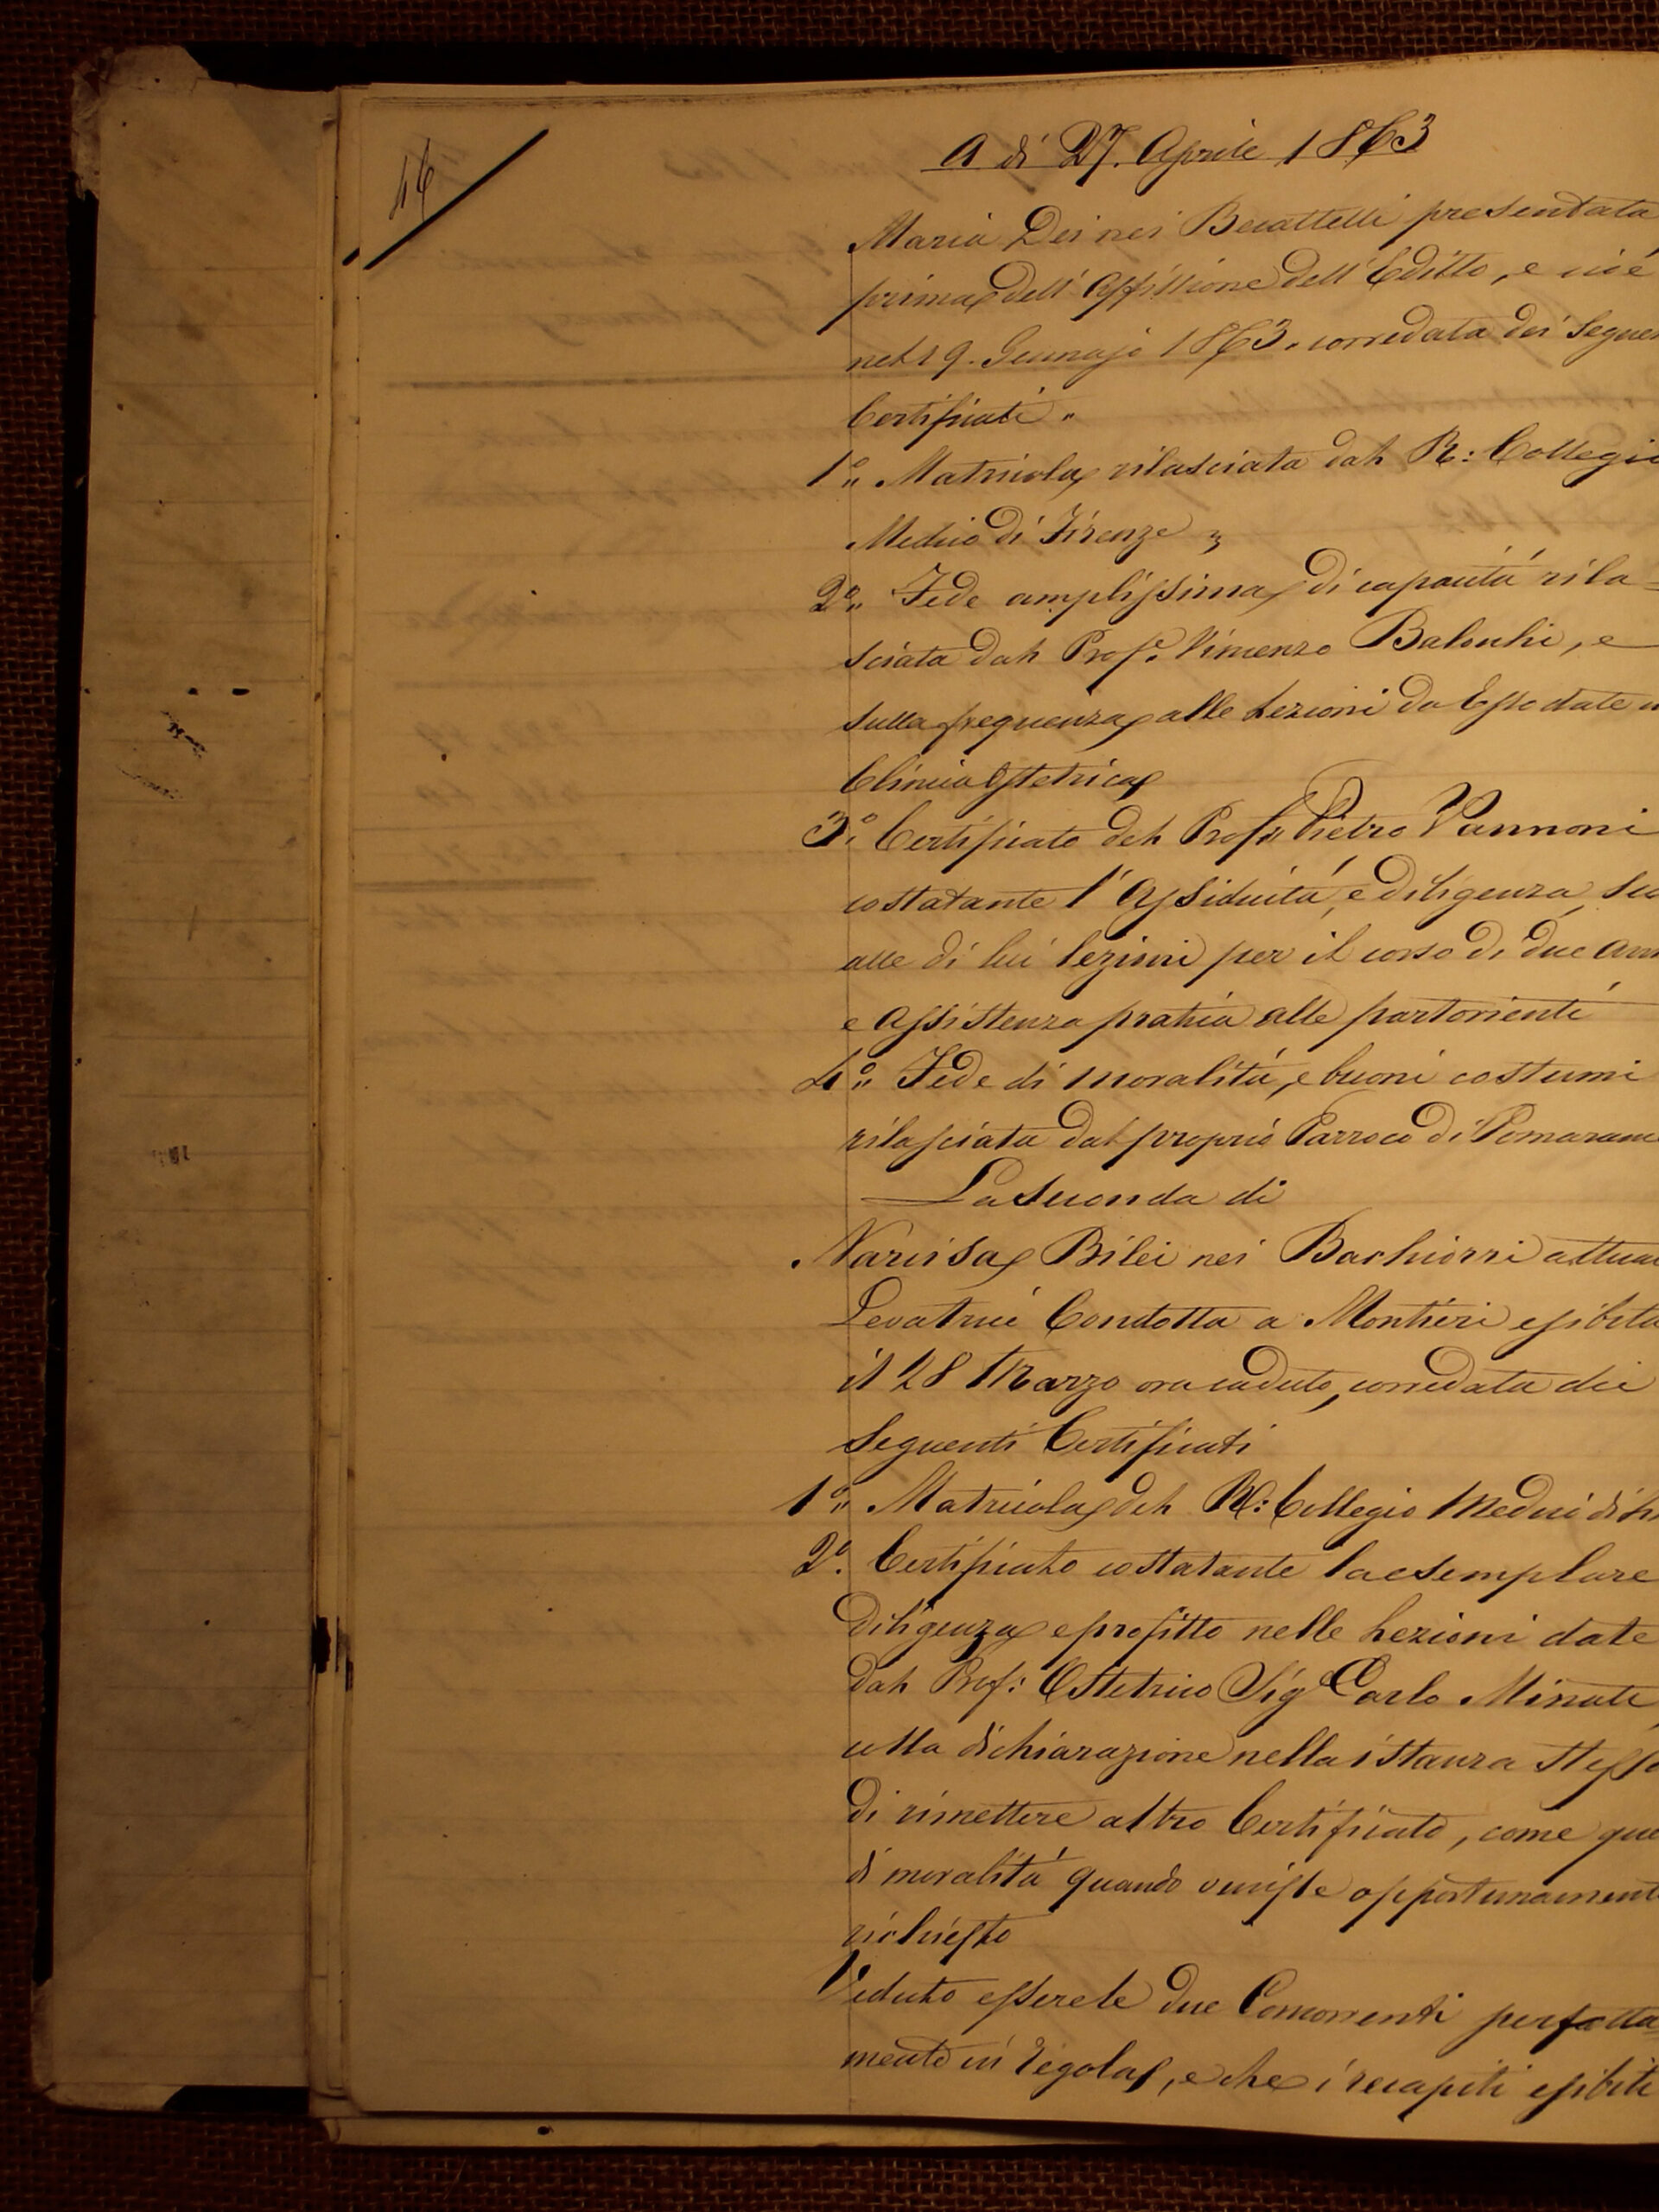 46
A dì 27. Aprile 1863
Maria Dei nei Becattelli presentata
prima dell' Affissione dell' Editto, e cioè
nel 19. Gennajo 1863. corredata dei Seguen
Certificati "
1° " Matricola rilasciata dal R: Collegio
Medico di Firenze "
2° " Fede amplissima di capacità rila=
sciata dal Prof.e Vincenzo Balocchi, e
sulla frequenza alle Lezioni da Esso date
Clinica Ostetrica
3° Certificato del Prof.r Pietro Vannoni
costatante l' Assiduità, e diligenza su
alle di lui lezioni per il corso di due ann
e assistenza pratica alle partorienti
4° " Fede di moralità, e buoni costumi
rilasciata dal proprio Parroco di Pomaranc
La Seconda di
Narcisa Bilei nei Bachiorri attual
Levatrice Condotta a Montieri esibita
il 28 Marzo ora caduto, corredata dei
Seguenti Certificati
1° " Matricola del R: Collegio Medico di
2° . Certificato costatante la esemplare
diligenza e profitto nelle Lezioni date
dal Prof: Ostetrico Sig Carlo Minati
colla dichiarazione nella istanza stessa
di rimettere altro Certificato, come que
di moralità quando venisse opportunament
richiesto
Veduto essere le due Concorrenti perfetta=
mente in regola, e che i recapiti esibiti